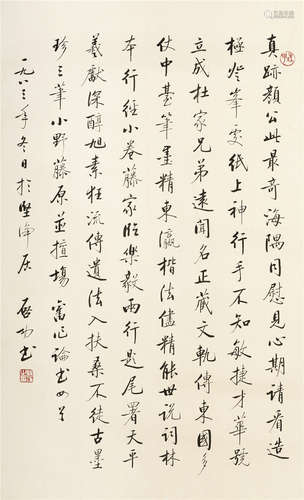 真跡顏公此最奇海隅同慰見心期請看造
極登峯處紙上神行手不知敏捷才華號
立成杜家兄弟遠聞名正藏文軌傳東國多
仗中臺筆墨精東瀛楷法儘精能世說詞林
本行經小卷藤家臨樂毅兩行題尾署天平
羲獻深醇旭素狂流傳遺法入扶桑不徒古墨
珍三筆小野藤原並擅場 舊作論書四首
一九八三年冬日於堅淨居 啟功書